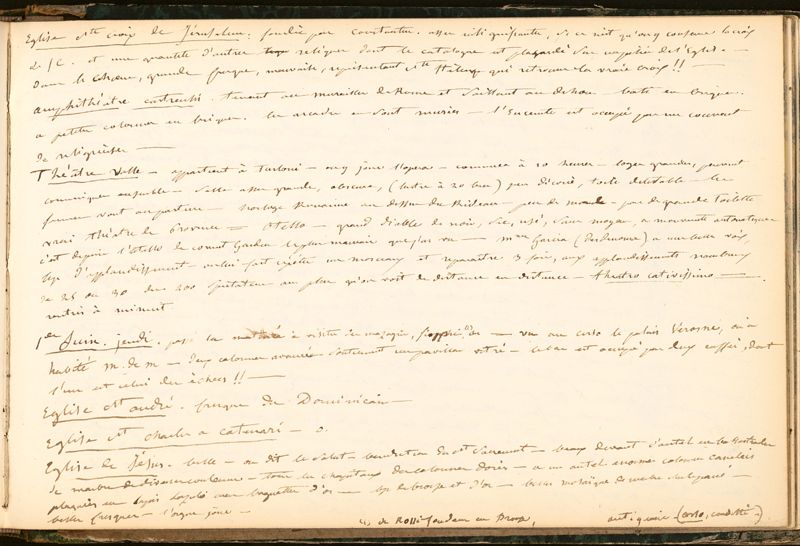 Eglise Ste croix de Jérusalem. fondée par Constantin. assez insignifiante, si ce n'est qu'on y conserve la croix
de J C. et une quantité d'autres reliques dont le catalogue est placardé sur un pilier de l'Eglise. —
Dans le choeur, grande fresque, mauvaise, représentant Ste Hélène qui retrouve la vraie croix !! —
Amphithéâtre castrensis. tenant aux murailles de Rome et saillant au dehors — bati en briques.
a petites colonnes en briques. les arcades en sont murées — l'Enceinte est occupée par un couvent
de religieuses —
Théâtre Valle — appartient à Torlonia — on y joue l'opera — commence à 10 heures — loges grandes, peuvent
communiquer ensemble — salle assez grande, obscure, (lustre à 20 becs) peu décorée, toile détestable — les
femmes vont au parterre — horloge Romaine au dessus du Rideau — peu de monde — pas de grande toilette
vrai théâtre de Province = Otello — grand diable de noir, sec, usé, sans moyens, a mouvements automatiques
c'est depuis l'Otello de Covent Garden le plus mauvais que j'ai vu — Mme Garcia (Desdemone) a une belle voix,
d'applaudissements on lui fait répéter un morceau et reparaître 3 fois, aux applaudissements nombreux
de 25 ou 30 des 200 spectateurs au plus qu'on voit de distance en distance — theatro cativissimo —
rentrés à minuit
1er Juin. jeudi. passé la matinée à visiter les magasins, — vu au corso le palais Verospi, où a
habité M. de M — Deux colonnes avancées soutiennent un pavillon vitré — le bas est occupé par deux caffés, dont
l'un est celui des échecs !! —
Eglise St André. fresque du Dominicain —
Eglise St Charles a catenari — d.
Eglise de Jésus. belle — on dit le salut — benediction du St Sacrement — beaux devants d'autel en bas
de marbre de diverses couleurs — tous les chapiteaux des colonnes dorés — a un autel enormes colonnes cannelées
plaquées en lapis lazuli avec baguettes d'or — de bronze et d'or — belles mosaïques
belles fresques — l'orgue joue —
(1) de Rossi fondeur en Bronze, antiquaire (corso, condotti)